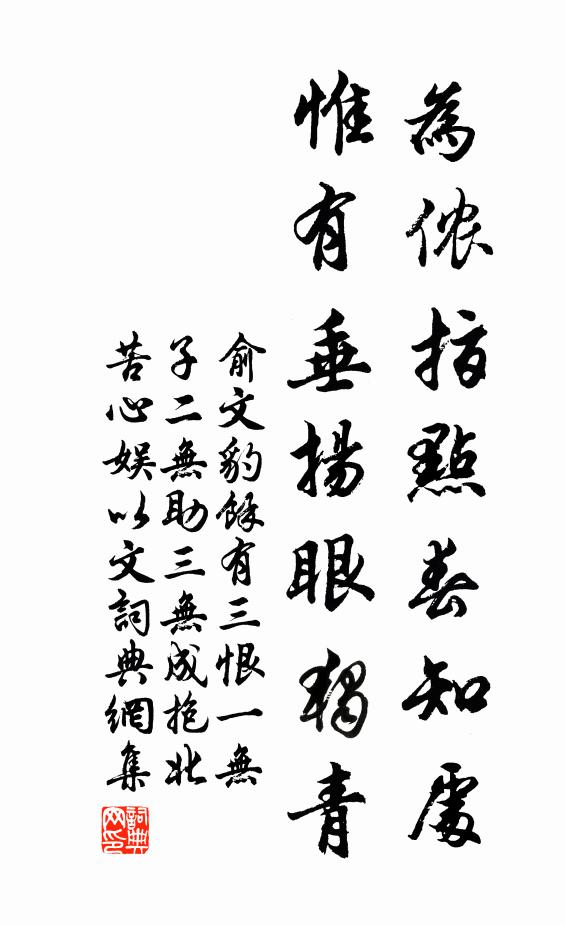 為儂指點春知處
惟有垂揚眼獨青
俞文豹餘有三恨一無
子二無助三無成抱此
苦心娱以文詞典網集
詞典
网印